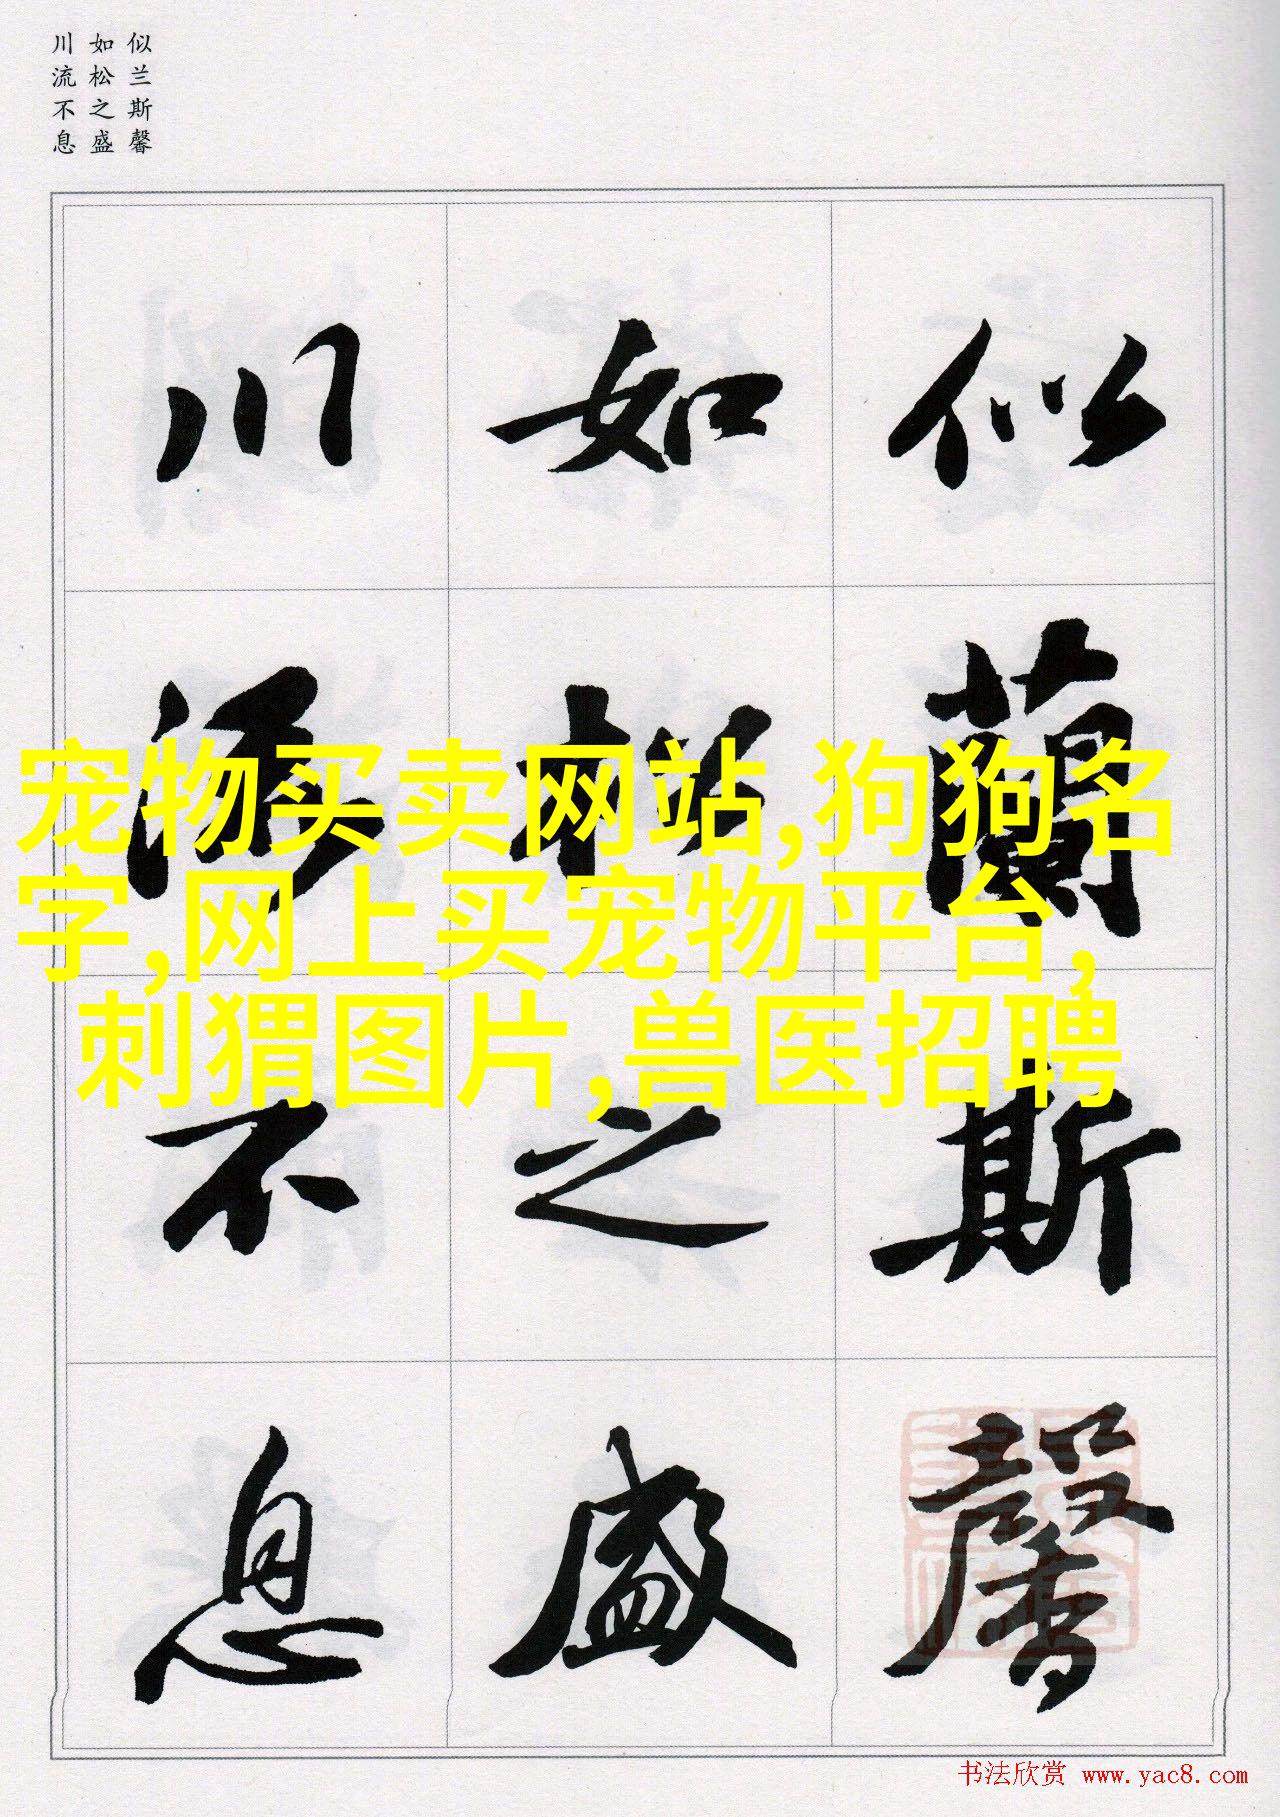 似兰斯馨
如松之盛
川流不息
似蘭斯馨
如松之盛
川流不息
宠物买卖网站,狗狗名
字,网上买宠物平台,
刺猬图片,兽医招聘
书法欣赏 www.yac8.com